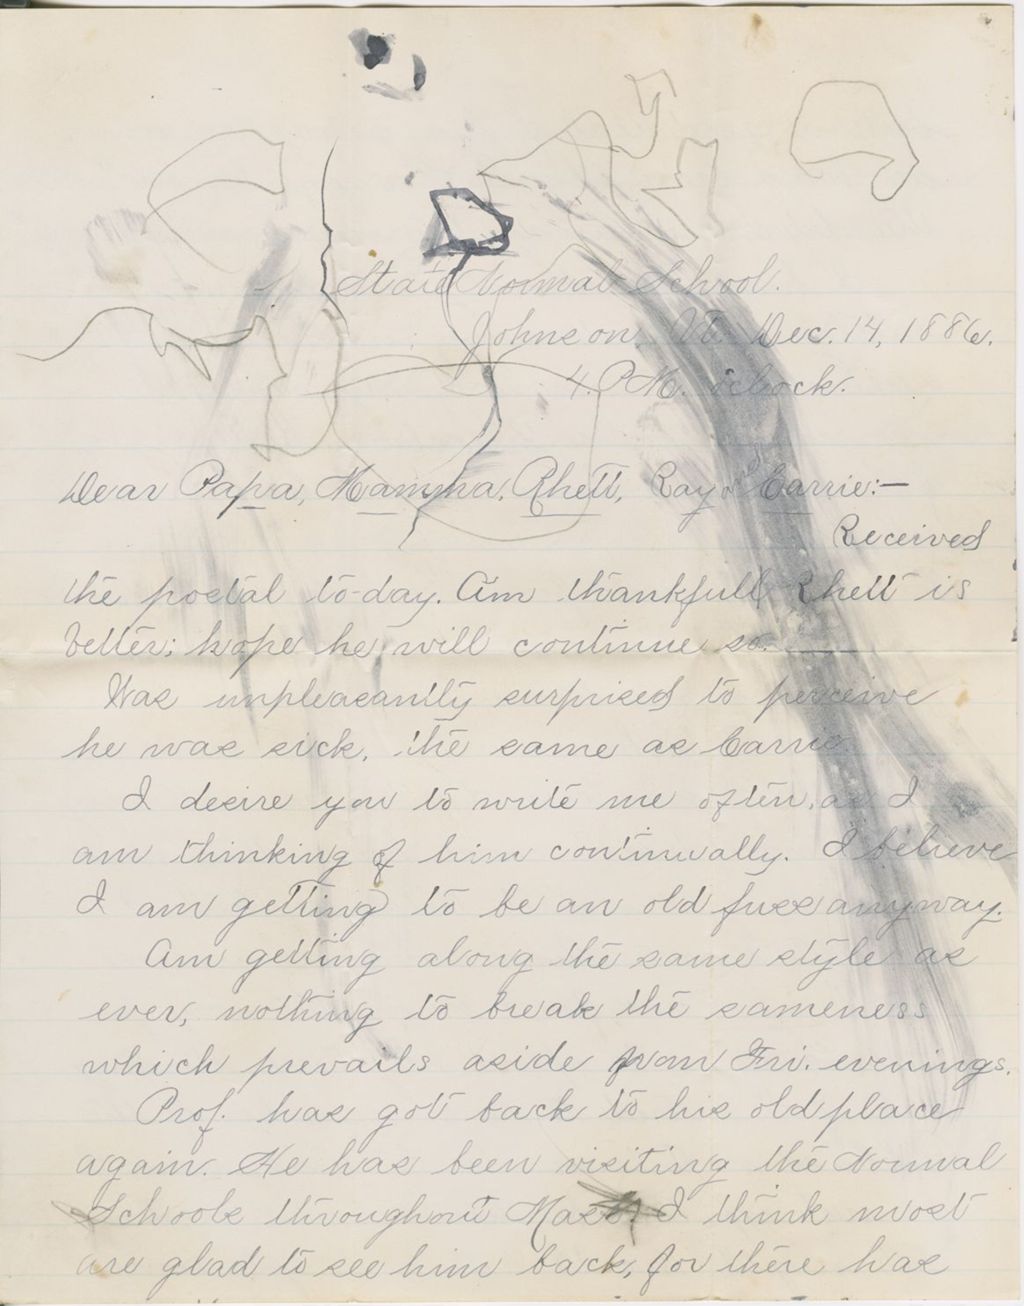 State Normal School.
Johnson, Vt. Dec. 14, 1886.
4. P.M. o'clock.
Dear Papa, Mamma, Rhett, Ray & Carrie:—
Received
the postal to-day. Am thankfull Rhett is
better; hope he will continue so.
Was unpleasantly surprised to perceive
he was sick, the same as Carrie.
I desire you to write me often, as I
am thinking of him continually. I believe
I am getting to be an old fuss anyway.
Am getting along the same style as
ever, nothing to break the sameness
which prevails aside from Fri. evenings.
Prof. has got back to his old place
again. He has been visiting the Normal
Schools throughout Mass. I think most
are glad to see him back, for there has